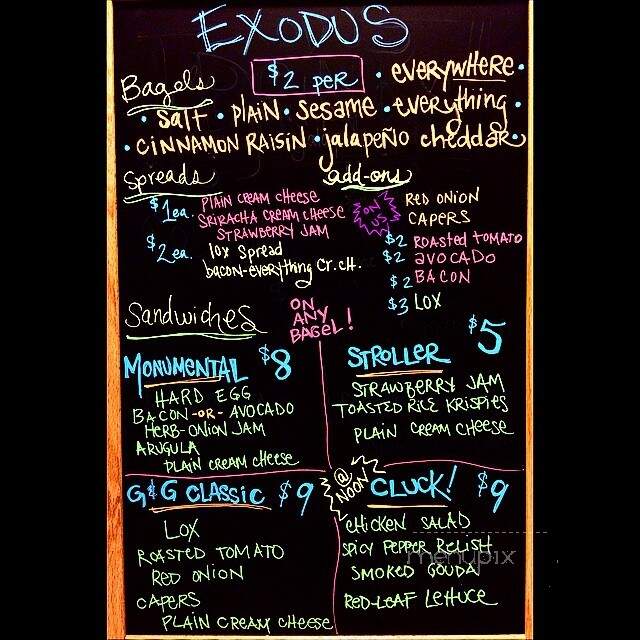 EXODUS
Bagels $2 per • everywhere •
• salt • PLAIN • sesame • everything •
• CINNAMON RAISIN • jalapeño cheddar
spreads
$1ea. PLAIN CREAM CHEESE
SRIRACHA CREAM CHEESE
STRAWBERRY JAM
$2ea. lox spread
bacon-everything cr.ch.
add-ons
ON US RED ONION
CAPERS
$2 ROASTED TOMATO
$2 AVOCADO
$2 BACON
$3 LOX
Sandwiches
ON
ANY
BAGEL!
MONUMENTAL $8
HARD EGG
BACON -OR- AVOCADO
HERB-ONION JAM
ARUGULA
PLAIN CREAM CHEESE
STROLLER $5
STRAWBERRY JAM
TOASTED RICE KRISPIES
PLAIN CREAM CHEESE
G&G CLASSIC $9
LOX
ROASTED TOMATO
RED ONION
CAPERS
PLAIN CREAM CHEESE
@ NOON
CLUCK! $9
CHICKEN SALAD
SPICY PEPPER RELISH
SMOKED GOUDA
RED-LEAF LETTUCE
menupix